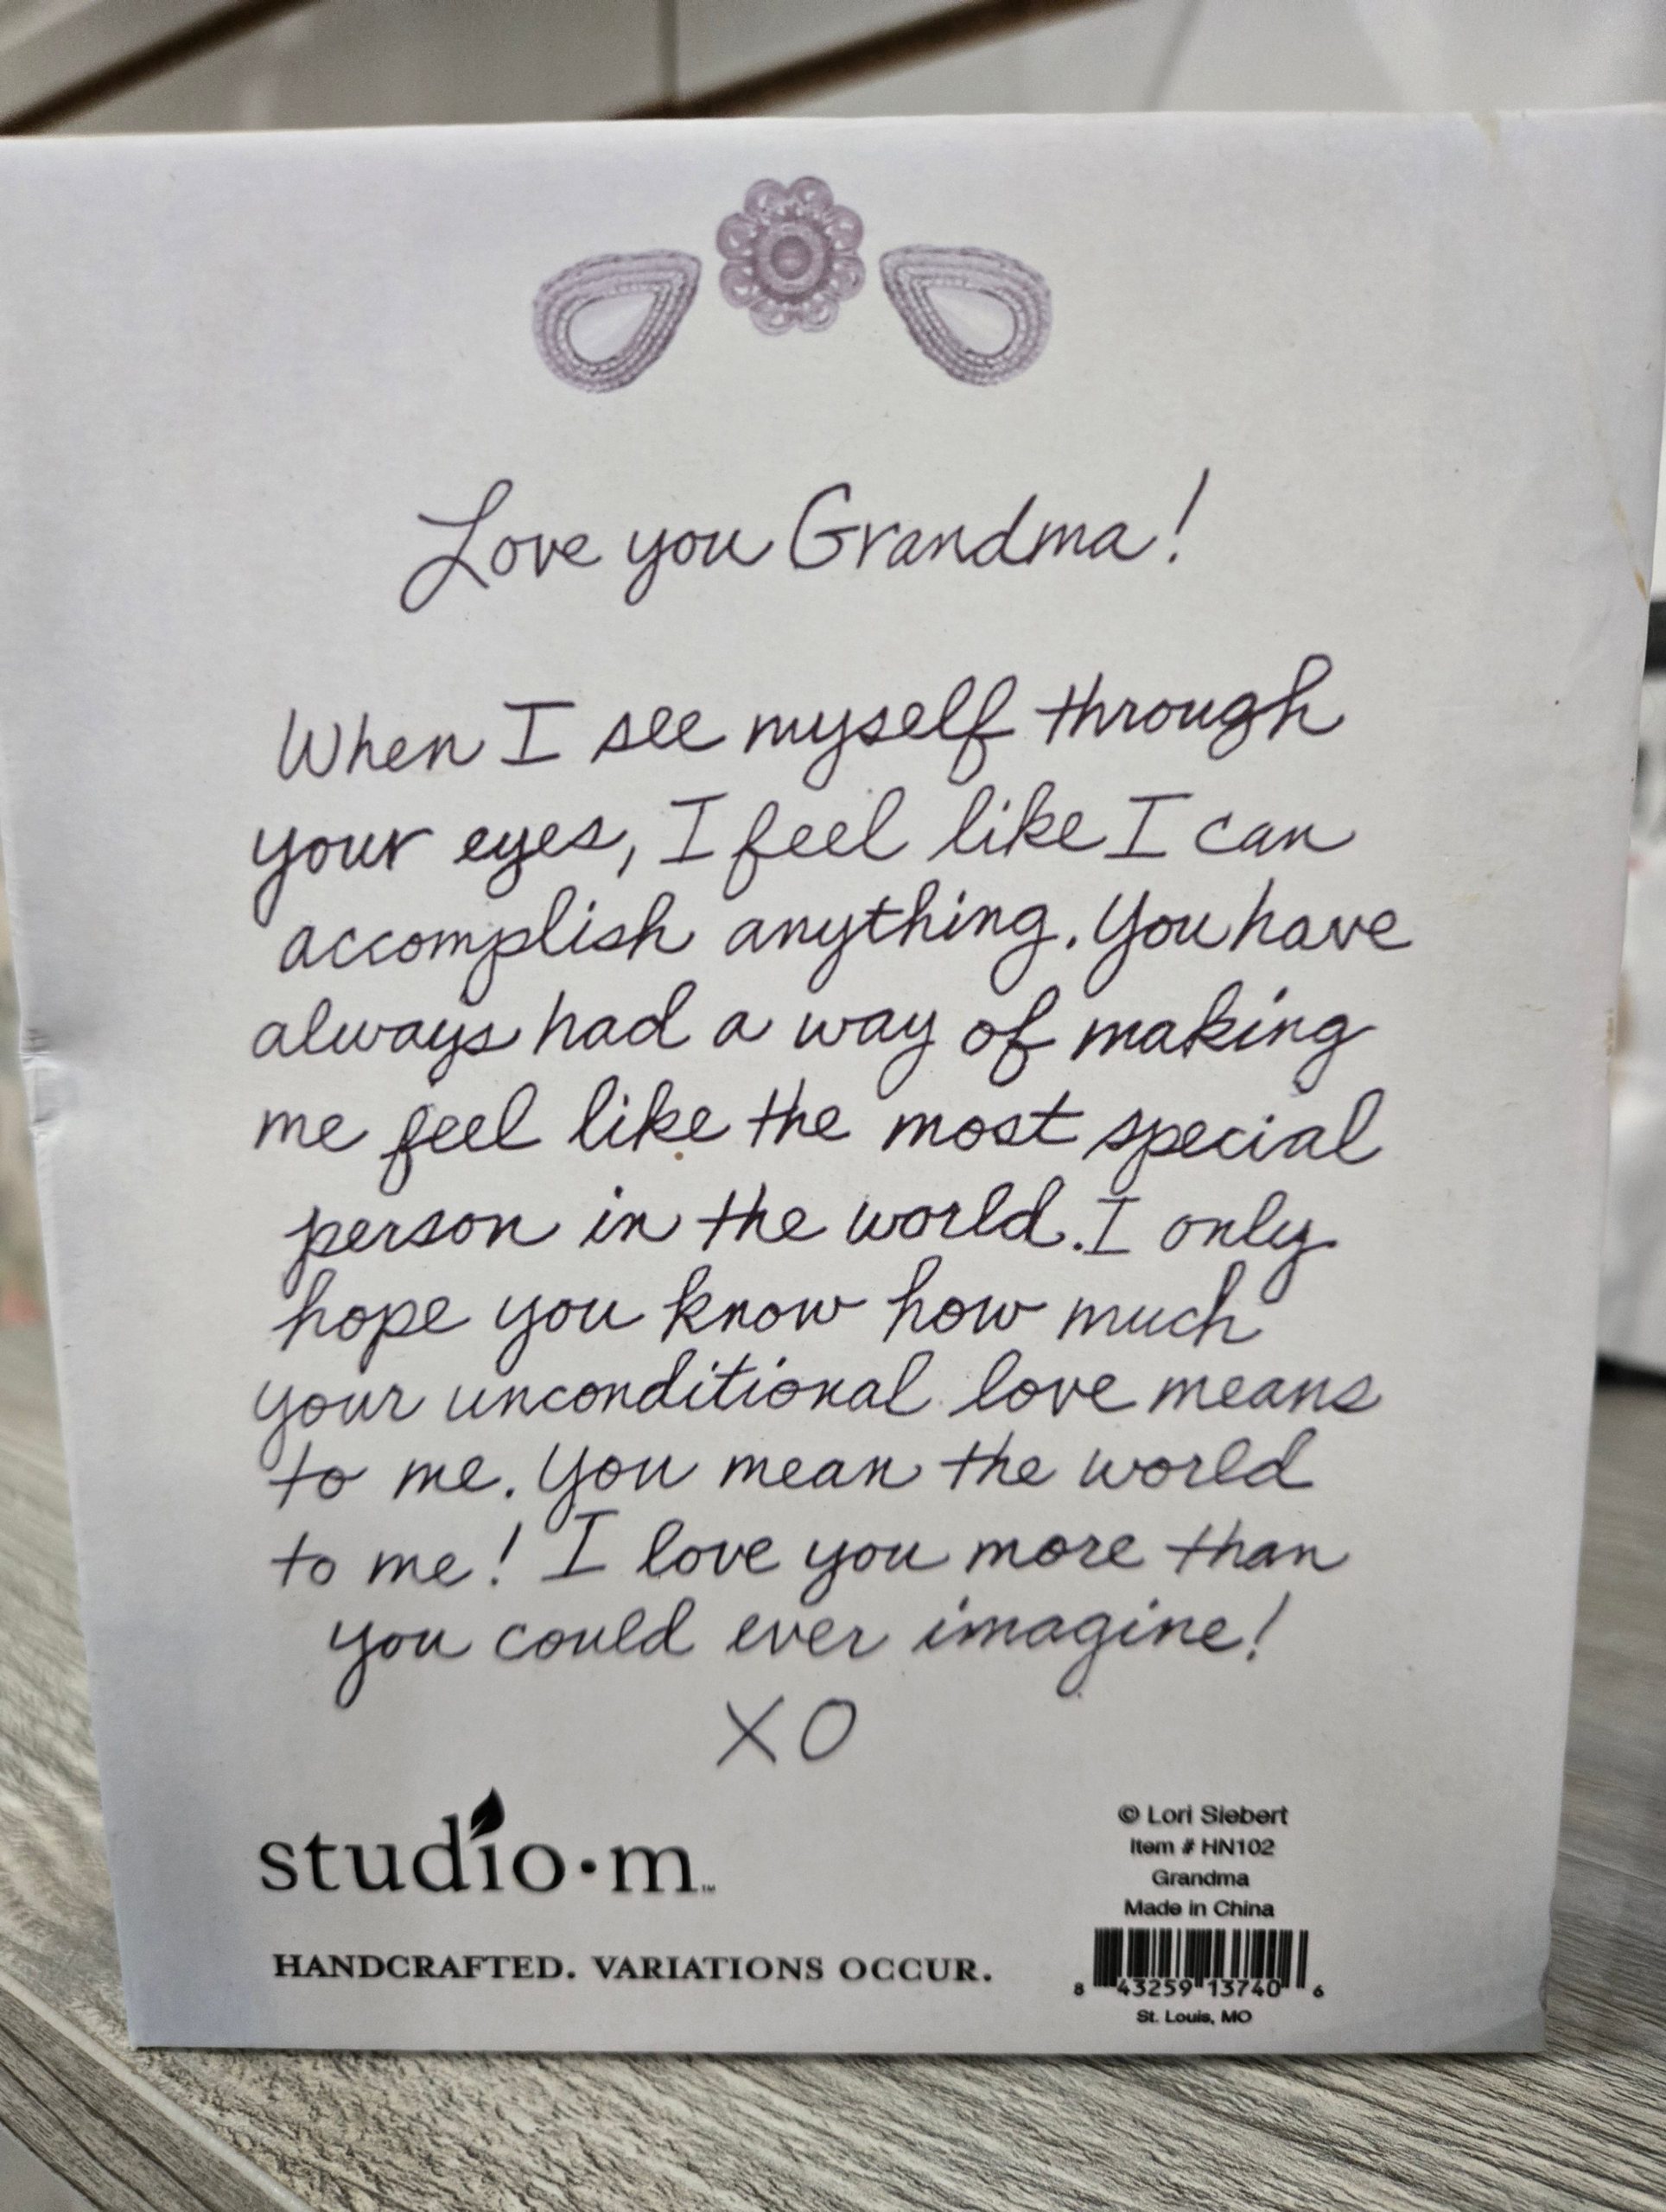 Love you Grandma!
When I see myself through
your eyes, I feel like I can
accomplish anything. You have
always had a way of making
me feel like the most special
person in the world. I only
hope you know how much
your unconditional love means
to me. You mean the world
to me! I love you more than
you could ever imagine!
XO
studio·m™
HANDCRAFTED. VARIATIONS OCCUR.
© Lori Siebert
Item # HN102
Grandma
Made in China
8 43259 13740 6
St. Louis, MO